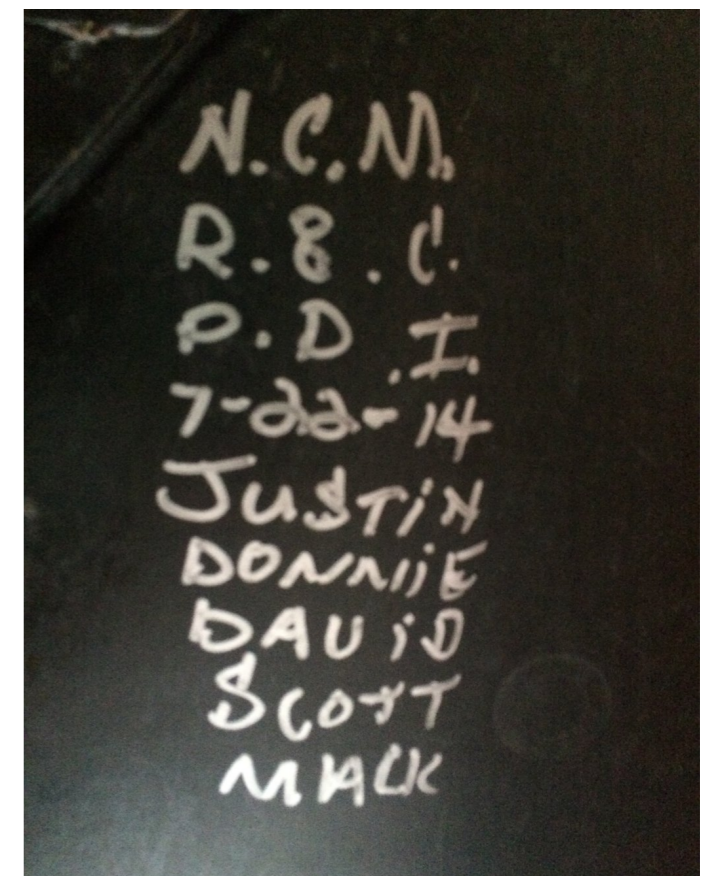 N.C.M.
R.8.C.
P.D.I.
7-22-14
JUSTiN
DONNiE
DAViD
SCOTT
MACK